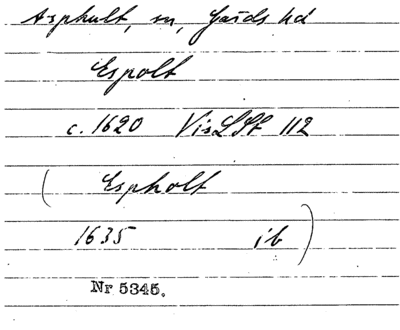 Asphult, sn, Gärds hd
Espolt
c. 1620 VisLSt 112
( Espholt
1635 ib )
Nr 5345.